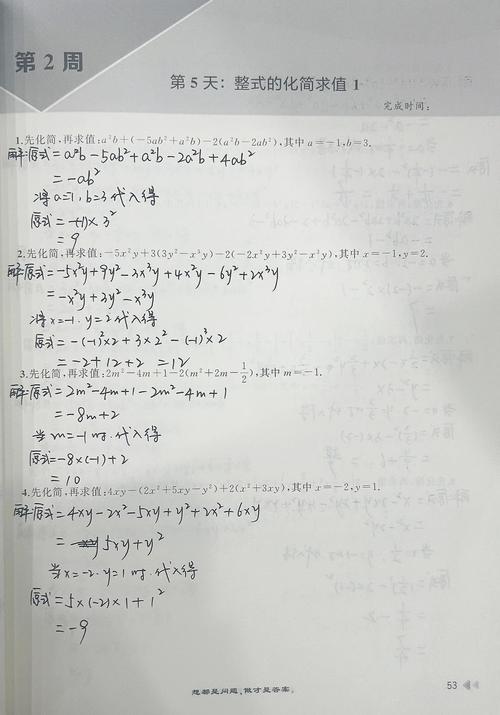 第2周
第5天：整式的化简求值1
完成时间：
1.先化简,再求值:a²b+(-5ab²+a²b)-2(a²b-2ab²),其中a=-1,b=3.
解:原式=a²b-5ab²+a²b-2a²b+4ab²
=-ab²
将a=-1,b=3代入得
原式=-(-1)×3²
=9
2.先化简,再求值:-5x²y+3(3y²-x³y)-2(-2x²y+3y²-x³y),其中x=-1,y=2.
解:原式=-5x²y+9y²-3x³y+4x²y-6y²+2x³y
=-x²y+3y²-x³y
将x=-1.y=2代入得
原式=-(-1)²×2+3×2²-(-1)³×2
=-2+12+2=12
3.先化简,再求值:2m²-4m+1-2(m²+2m-1/2),其中m=-1.
解:原式=2m²-4m+1-2m²-4m+1
=-8m+2
当m=-1时.代入得
原式=-8×(-1)+2
=10
4.先化简,再求值:4xy-(2x²+5xy-y²)+2(x²+3xy),其中x=-2,y=1.
解:原式=4xy-2x²-5xy+y²+2x²+6xy
=5xy+y²
当x=-2.y=1时.代入得
原式=5×(-2)×1+1²
=-9
想都是问题,做才是答案。
53